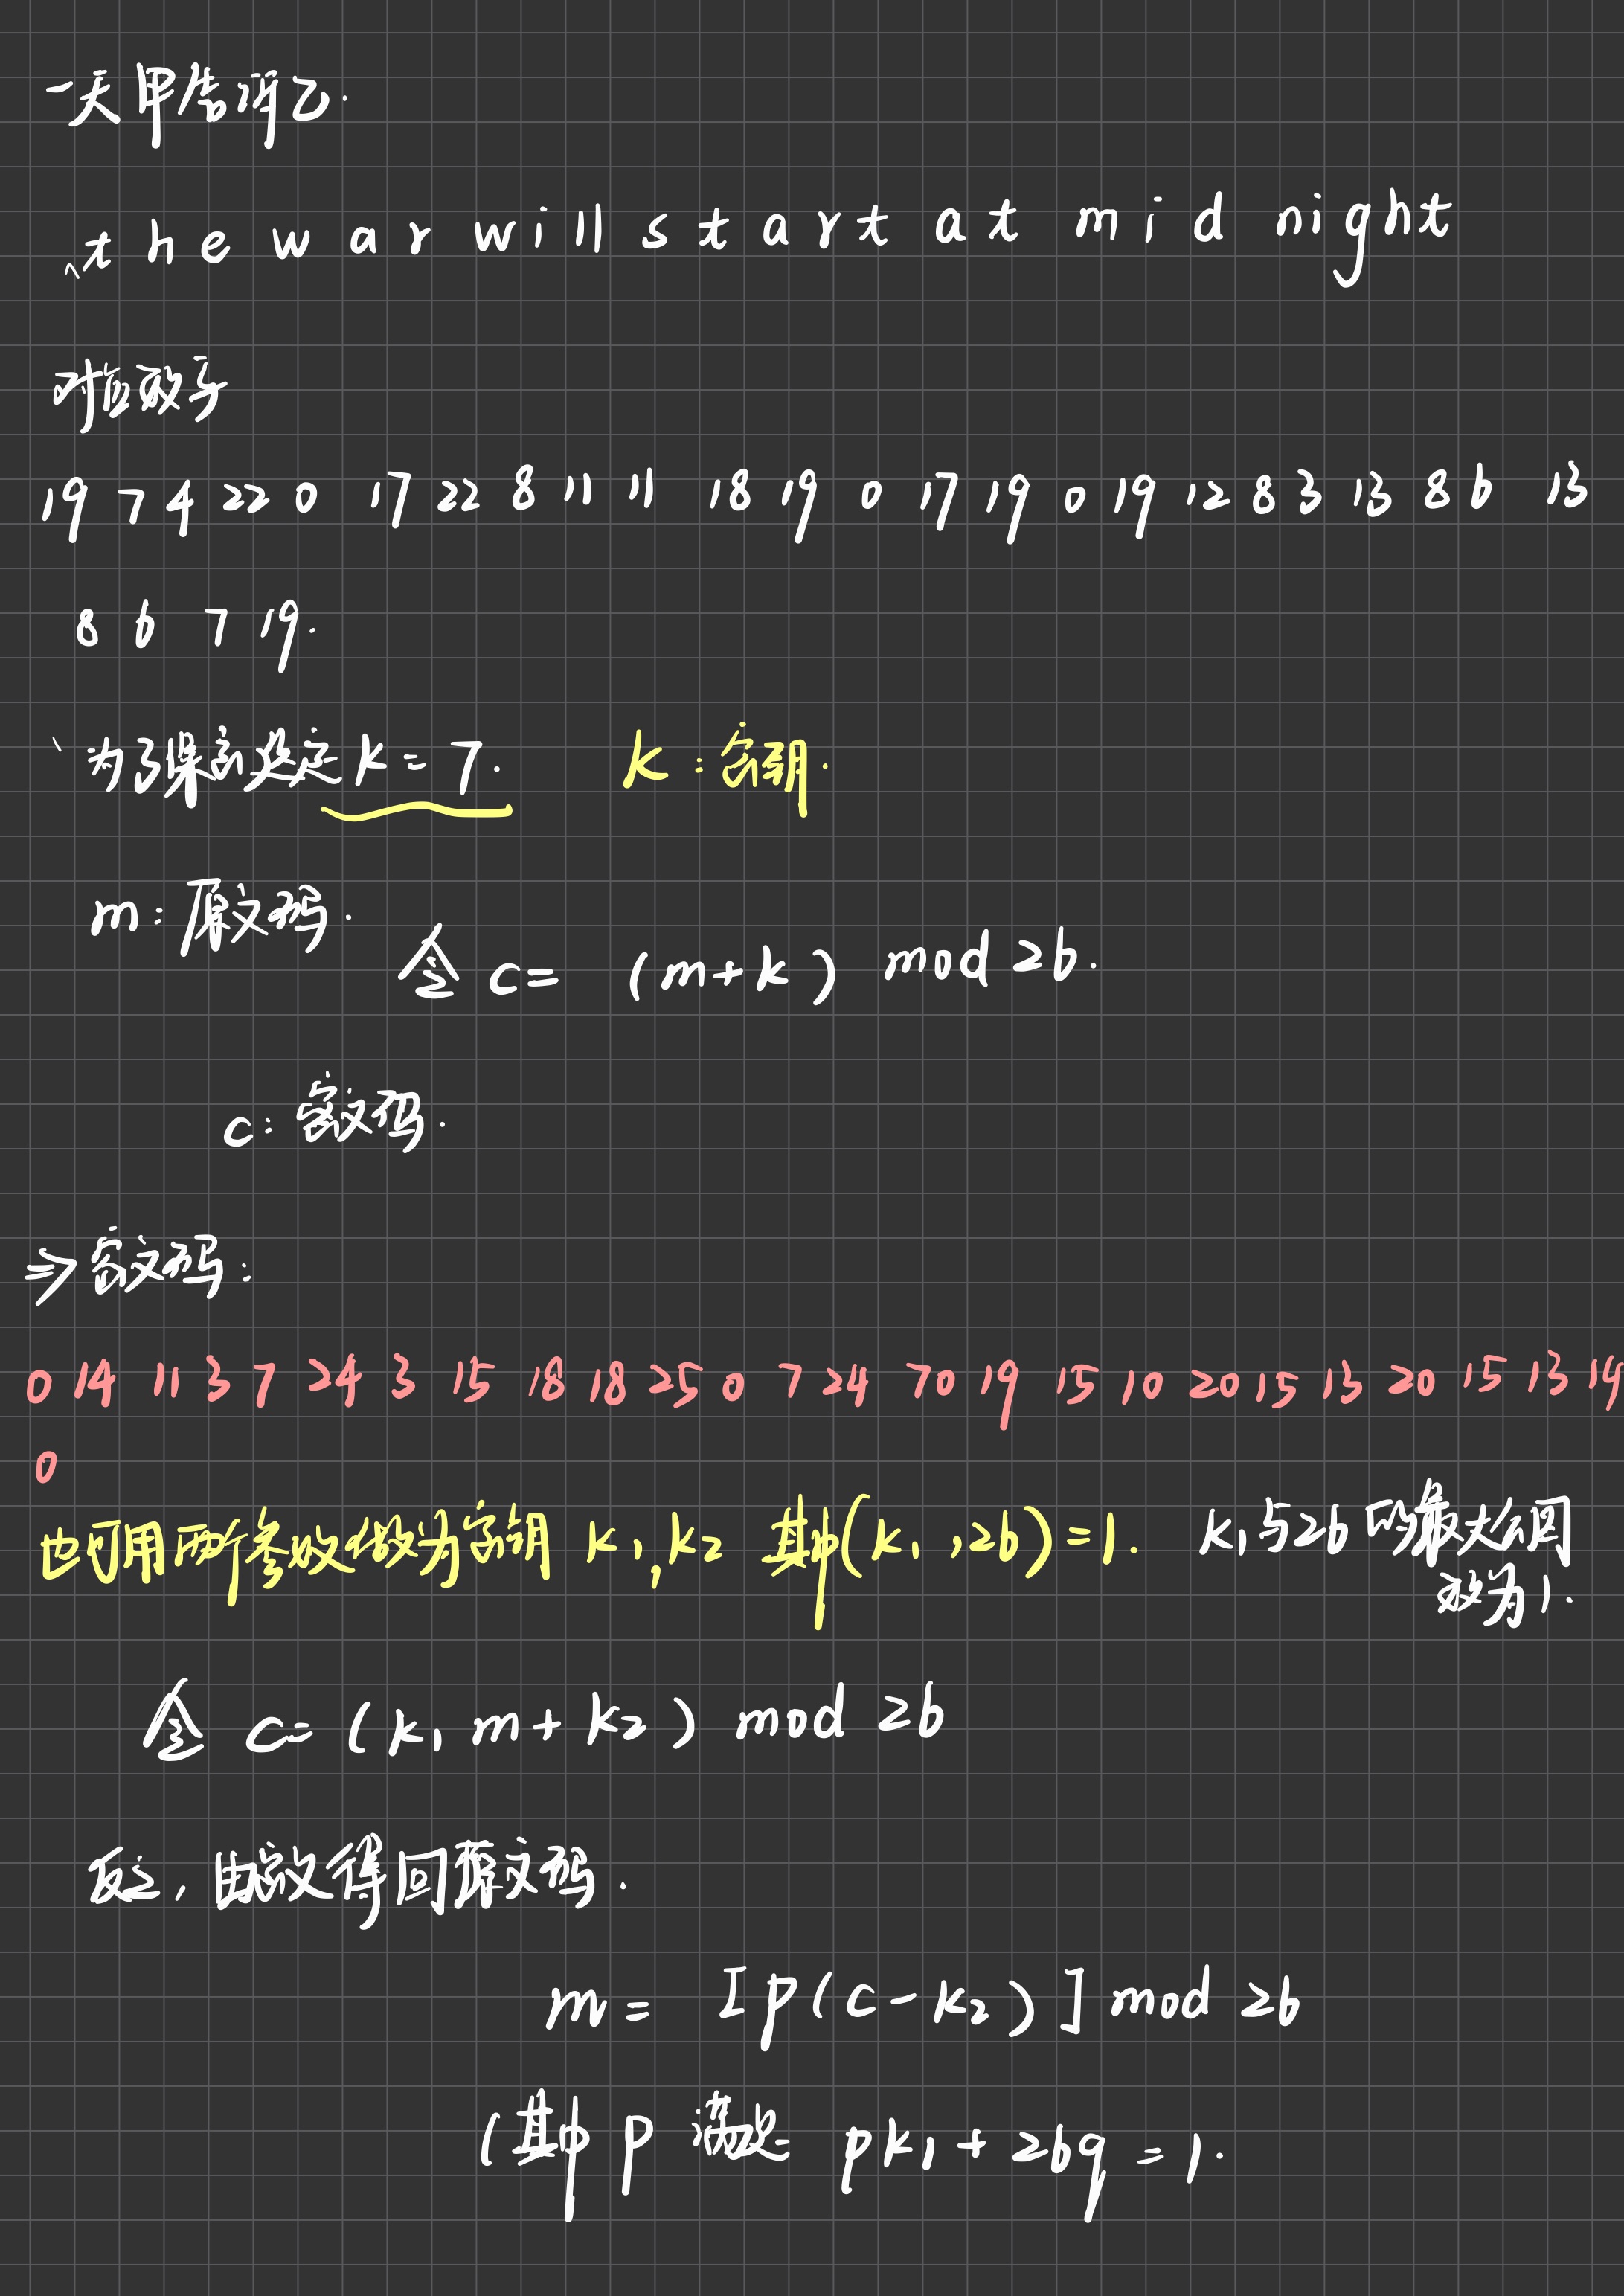 一天甲告诉乙.
the war will start at mid night
对应数字
19 7 4 22 0 17 22 8 11 11 18 19 0 17 19 0 19 12 8 3 13 8 6 13
8 6 7 19.
为了保密选定 k = 7. k : 密钥.
m: 原文码.
令 c = (m+k) mod 26.
c: 密文码.
⇒ 密文码:
0 14 11 3 7 24 3 15 18 18 25 0 7 24 7 0 19 15 10 20 15 13 20 15 13 14
0
也可用两个参数做为密钥 k1,k2 其中(k1,26)=1. k1与26的最大公因
数为1.
令 c= (k1 m+k2) mod 26
反之, 由密文得回原文码.
m = [p(c-k2)] mod 26
(其中 p 满足 pk1+26q=1.